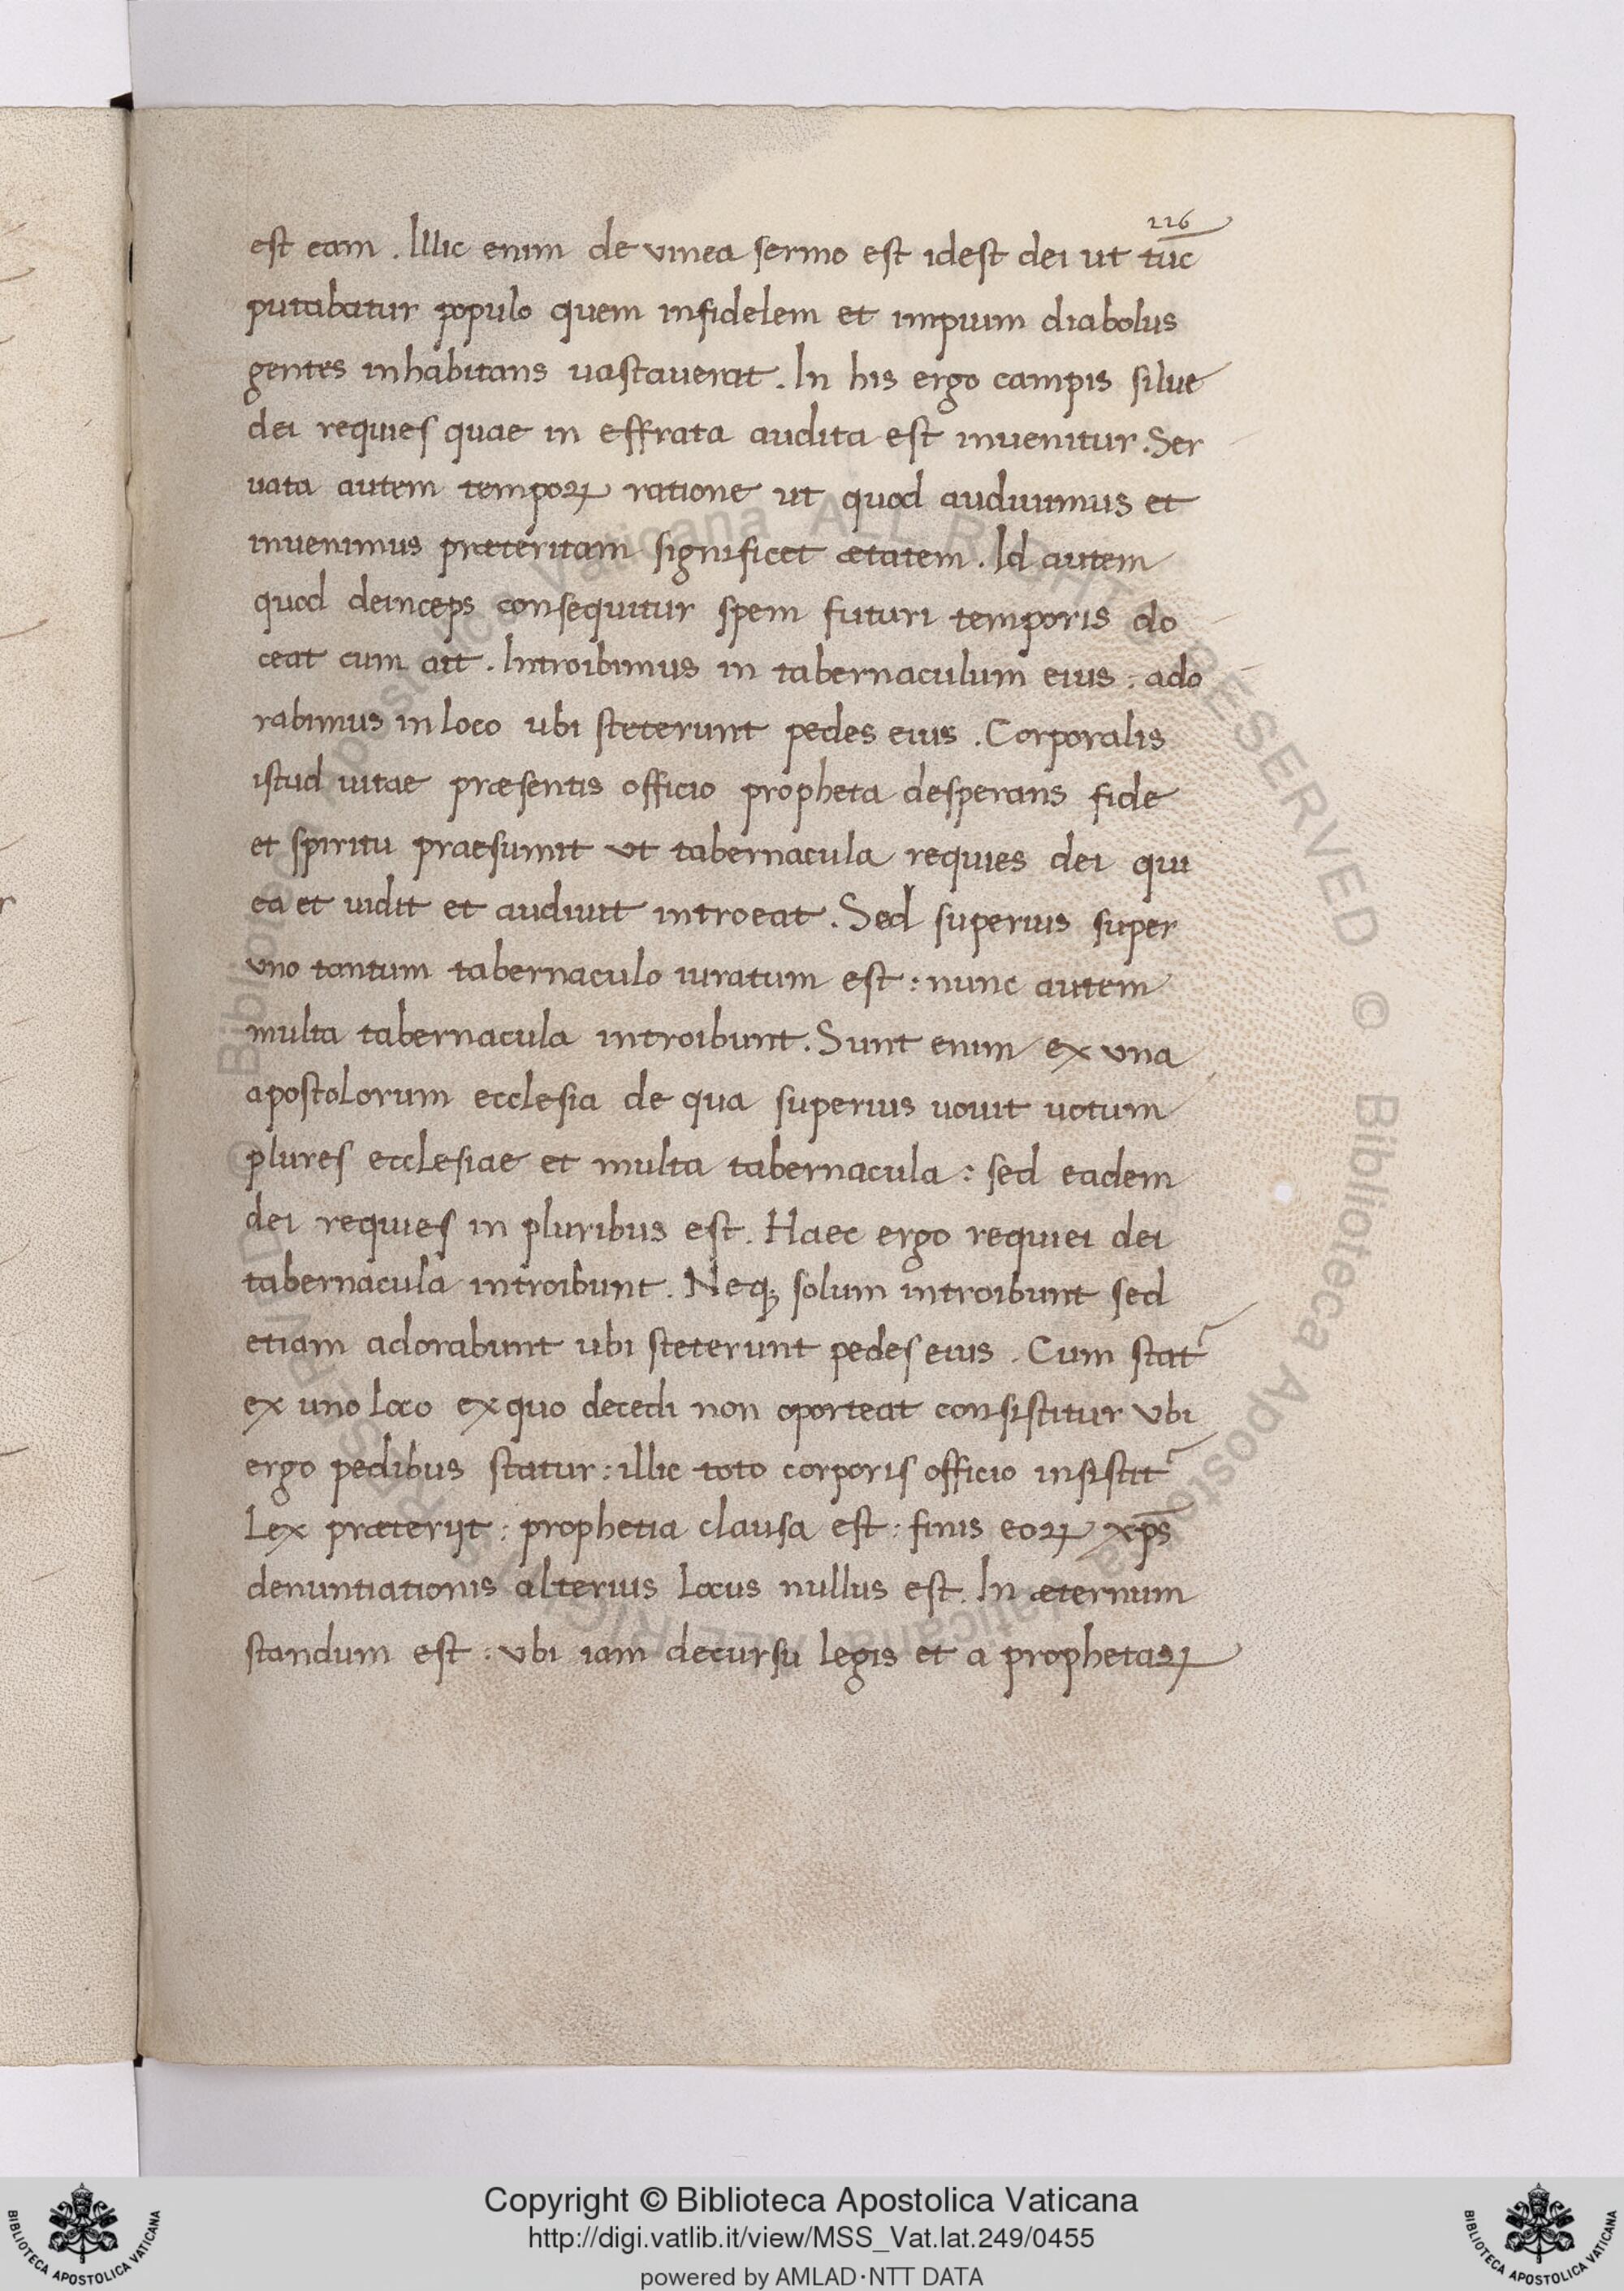 226
est eam . Illic enim de vinea sermo est idest dei ut tūc
putabatur populo quem infidelem et impium diabolus
gentes inhabitans uastauerat . In his ergo campis silue
dei requies quae in effrata audita est inuenitur . Ser
uata autem temporꝝ ratione ut quod audiuimus et
inuenimus præteritam significet ætatem . Id autem
quod deinceps consequitur spem futuri temporis do
ceat cum ait . Introibimus in tabernaculum eius : ado
rabimus in loco ubi steterunt pedes eius . Corporalis
istud uitae præsentis officio propheta desperans fide
et spiritu praesumit ut tabernacula requies dei qui
ea et uidit et audiuit introeat . Sed superius super
vno tantum tabernaculo iuratum est : nunc autem
multa tabernacula introibunt . Sunt enim ex vna
apostolorum ecclesia de qua superius uouit uotum
plures ecclesiae et multa tabernacula : sed eadem
dei requies in pluribus est . Haec ergo requiei dei
tabernacula introibunt . Neqꝫ solum introibunt sed
etiam adorabunt ubi steterunt pedes eius . Cum stat᷑
ex uno loco ex quo decedi non oporteat consistitur vbi
ergo pedibus statur : illic toto corporis officio insistit᷑
Lex præterijt : prophetia clausa est : finis eoꝝ xp̄s
denuntiationis alterius locus nullus est . In æternum
standum est : vbi iam decursu legis et a prophetaꝝ
© Biblioteca Apostolica Vaticana ALL RIGHTS RESERVED
Copyright © Biblioteca Apostolica Vaticana
http://digi.vatlib.it/view/MSS_Vat.lat.249/0455
powered by AMLAD·NTT DATA
BIBLIOTECA APOSTOLICA VATICANA
BIBLIOTECA APOSTOLICA VATICANA